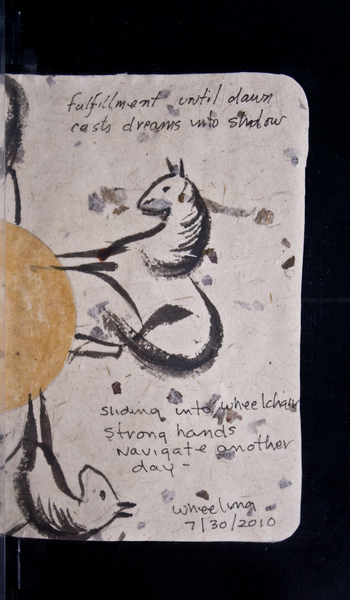 fulfillment until dawn
casts dreams into shadow
sliding into wheelchair
strong hands
navigate another
day -
wheeling
7/30/2010